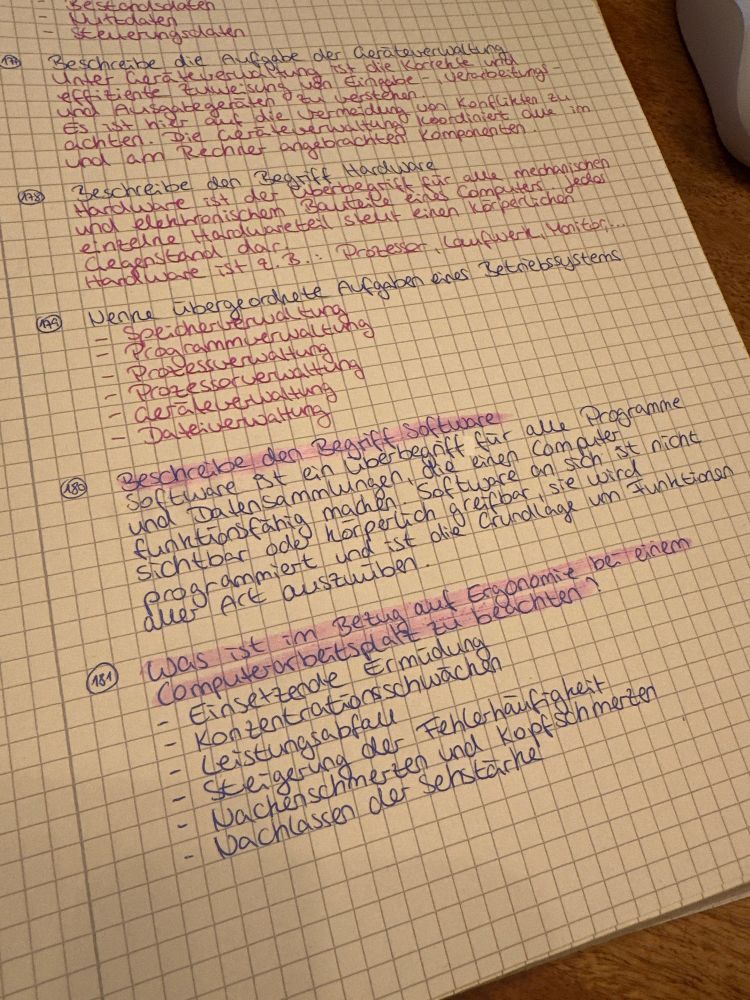 - Bestandsdaten
- Nutzdaten
- Steuerungsdaten
177 Beschreibe die Aufgabe der Geräteverwaltung
Unter Geräteverwaltung ist die korrekte und
effiziente Zuweisung von Eingabe-, Verarbeitungs-
und Ausgabegeräten zu verstehen.
Es ist hier auf die Vermeidung von Konflikten zu
achten. Die Geräteverwaltung koordiniert alle im
und am Rechner angebrachten Komponenten
178 Beschreibe den Begriff Hardware
Hardware ist der Überbegriff für alle mechanischen
und elektronischen Bauteile eines Computers. Jedes
einzelne Hardwareteil stellt einen körperlichen
Gegenstand dar.
Hardware ist z.B.: Prozessor, Laufwerk, Monitor,...
179 Nenne übergeordnete Aufgaben eines Betriebssystems
- Speicherverwaltung
- Programmverwaltung
- Prozessverwaltung
- Prozessorverwaltung
- Geräteverwaltung
- Dateiverwaltung
180 Beschreibe den Begriff Software
Software ist ein Überbegriff für alle Programme
und Datensammlungen, die einen Computer
funktionsfähig machen. Software an sich ist nicht
sichtbar oder körperlich greifbar, sie wird
programmiert und ist die Grundlage um Funktionen
aller Art auszuüben.
181 Was ist im Bezug auf Ergonomie bei einem
Computerarbeitsplatz zu beachten?
- Einsetzende Ermüdung
- Konzentrationsschwächen
- Leistungsabfall
- Steigerung der Fehlerhäufigkeit
- Nackenschmerzen und Kopfschmerzen
- Nachlassen der Sehstärke